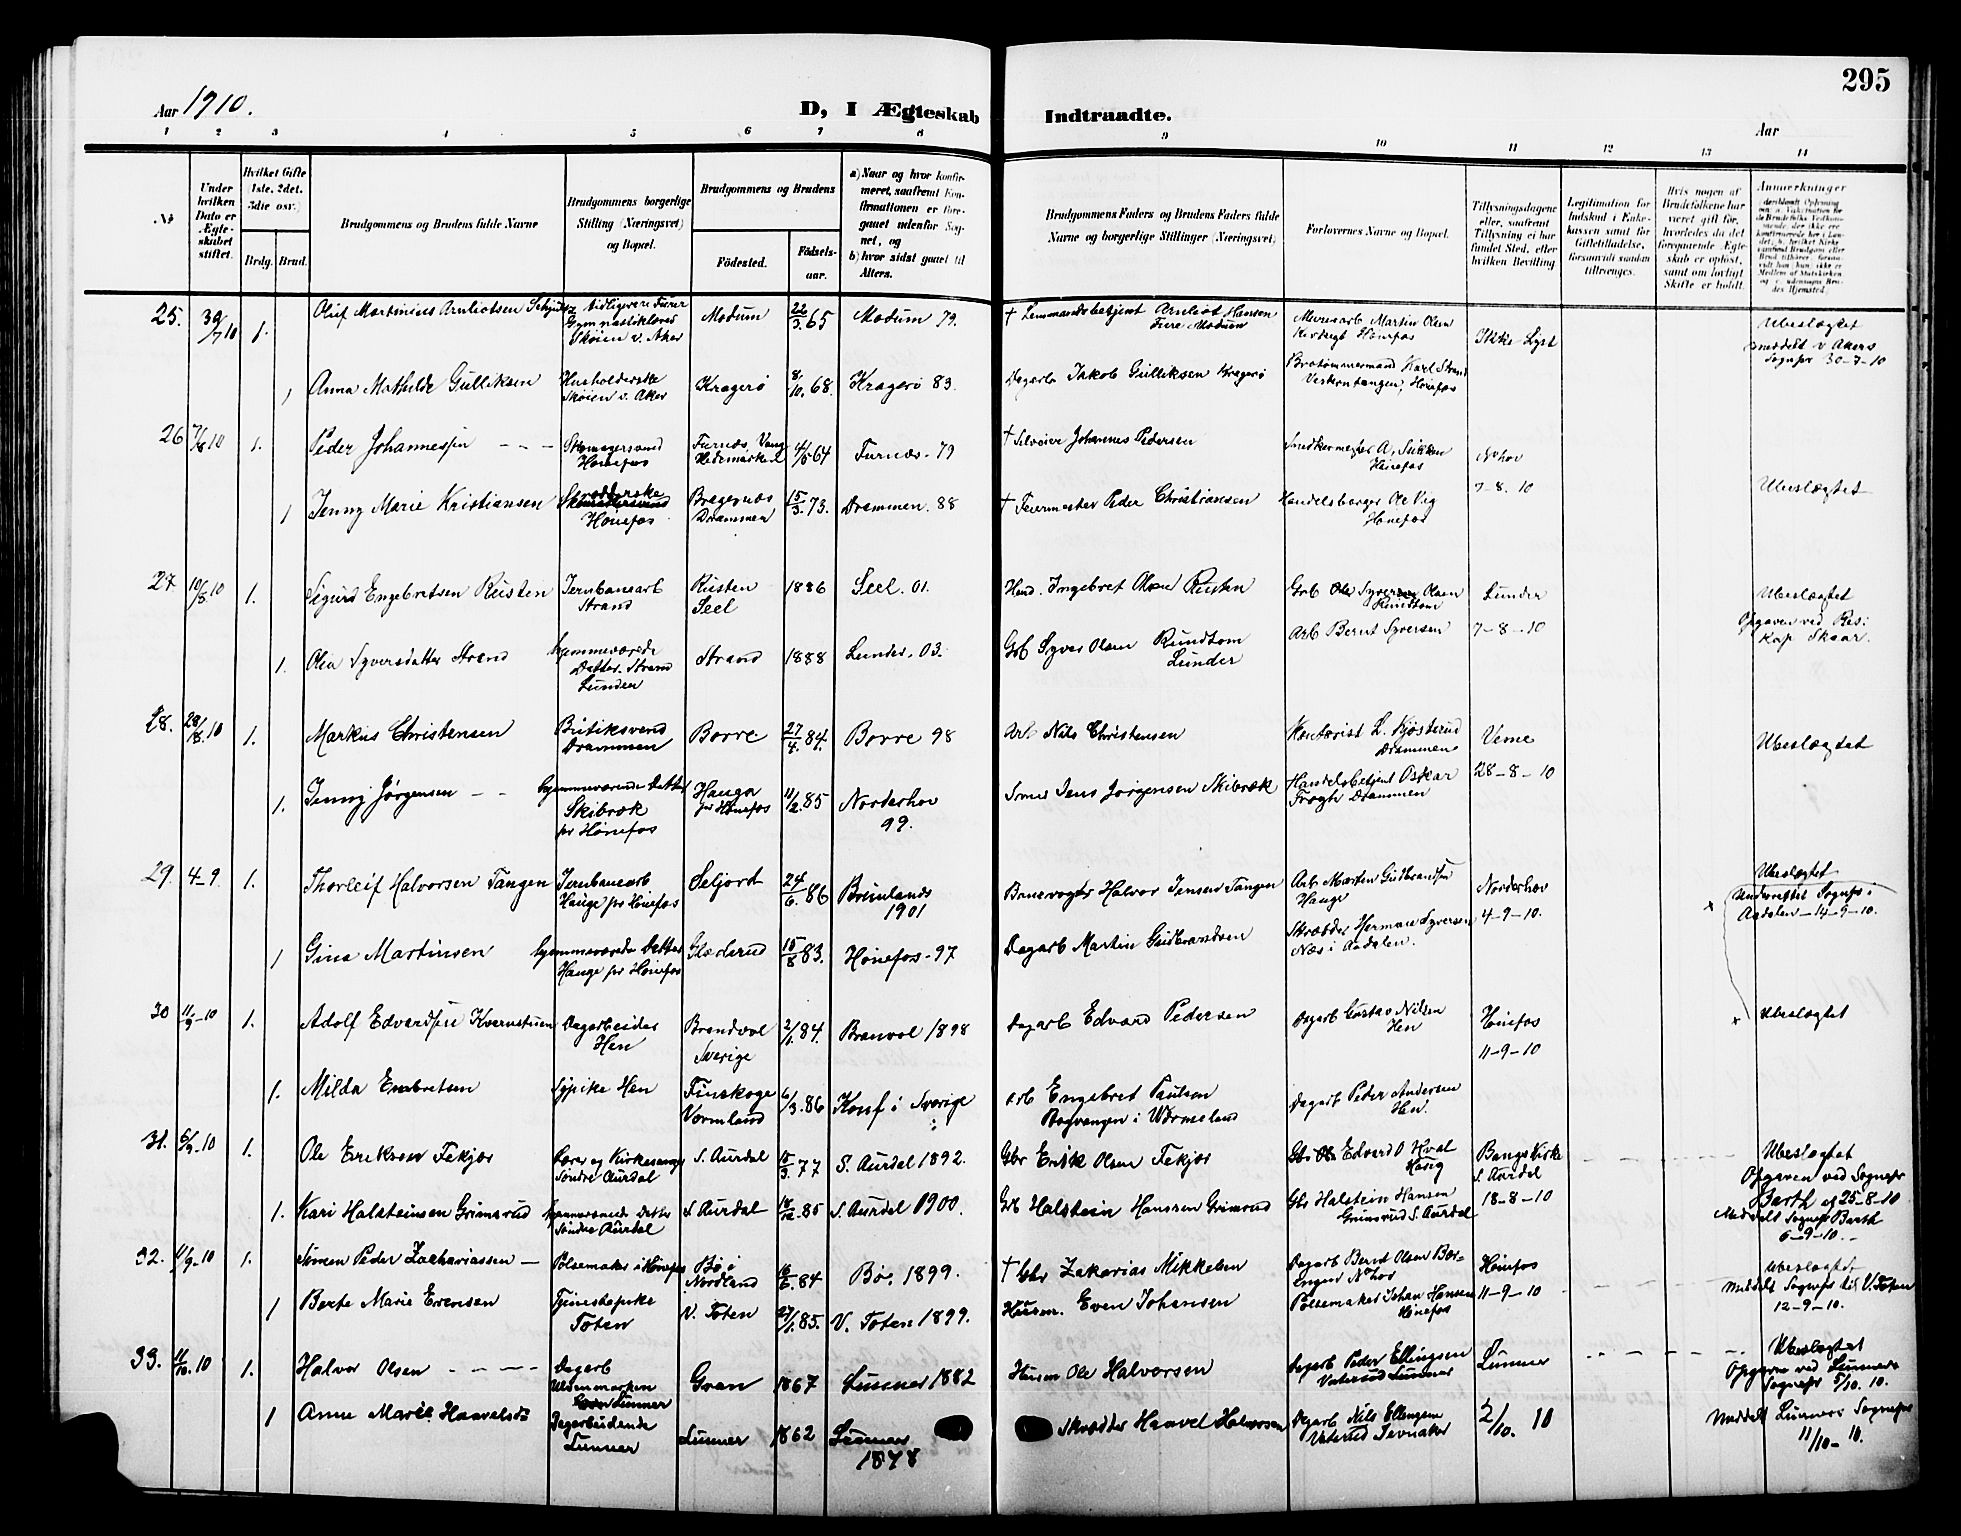 295
Aar 1910.
D, I Ægteskab Indtraadte.
Aar
1 2 3 4 5 6 7 8 9 10 11 12 13 14
Nr
Under hvilken Dato er Ægteskabet stiftet.
Hvilket Gifte (1ste, 2det, 3die osv.)
Brdg. Brud.
Brudgommens og Brudens fulde Navne
Brudgommens borgerlige Stilling (Næringsvei) og Bopæl.
Brudgommens og Brudens
Fødested.
Fødselsaar.
a) Naar og hvor konfirmeret, saafremt Konfirmationen er foregaaet udenfor Sognet, og
b) hvor sidst gaaet til Alters.
Brudgommens Faders og Brudens Faders fulde Navne og borgerlige Stillinger (Næringsvei)
Forlovernes Navne og Bopæl.
Tillysningsdagene eller, saafremt Tillysning ei har fundet Sted, efter hvilken Bevilling
Legitimation for Indskud i Enkekassen samt for Giftetilladelse, forsaavidt saadan tiltrænges.
Hvis nogen af Brudefolkene har været gift før, hvorledes da det foregaaende Ægteskab er opløst, samt om lovligt Skifte er holdt.
Anmærkninger
25. 30/7 10 1. Oluf Martinius Arnliotsen
Gymnastiklærer
Skøien v. Aker
Modum 22/3 65 Modum 79.
† Lensmandsbetjent Arnliot Hansen
Modum
Murerarb Martin Olsen
Hønefos
Ikke Lyst
Ubeslægtet
meddelt v Akers
Sognepr 30-7-10
1 Anna Mathilde Gulliksen
Husholderske
Skøien v. Aker
Kragerø 8/10 68. Kragerø 83.
Dagarb Jakob Gulliksen Kragerø
Karl Strand
Hønefos
26 7/8 10 1. Peder Johannessen
Skomagersvend
Hønefos
Furnæs, Vang
Hedemarken
4/5 64 Furnæs. 79
† Johannes Pedersen
Snedkermester A.
Hønefos
Nohov
7-8. 10
Ubeslægtet
1 Jenny Marie Kristiansen
Hønefos
Bragernæs
Drammen
15/3 73. Drammen. 88
† Feiermester Peder Christiansen
Handelsborger Ole Vig
Hønefos
27 10/8 10 1. Sigurd Engebretsen Rusten
Jernbanearb
Strand
Rusten
Seel
1886 Seel. 01.
Ingebret Olsen Rusten
Grb Ole Syversen Olsen
Rundtom
Lunder
7-8-10
Ubeslægtet
Opgaven ved Res:
Kap Skaar.
1. Olia Syversdatter Strand
hjemmeværende
Datter. Strand
Lunder
Strand 1888 Lunder. 03.
Grb Syver Olsen Rundtom
Lunder
Arb Bernt Syversen
28. 28/8. 10 1. Markus Christensen
Butiksvend
Drammen
Borre 27/4. 84. Borre 98
Arb Nils Christensen
Kontorist L. Kjøsterud
Drammen
Veme
28-8-10
Ubeslægtet
1. Jenny Jørgensen
hjemmeværende Datter
Skibræk
pr Hønefos
Hauga
pr Hønefos
11/2. 85 Norderhov
99.
Jens Jørgensen Skibræk
Handelsbetjent Oskar
Drammen
29. 4-9 1. Thorleif Halvorsen Tangen
Jernbanearb
Hauge pr Hønefos
Seljord 24/6 86
1901
Banevogter Halvor Jensen Tangen
Arb Morten Gudbrandsen
Hauge
Norderhov
4-9-10.
Ubeslægtet
Underrettet Sognepr i
Aadalen-14-9-10.
1 Gina Martinsen
hjemmeværende Datter
Hauge pr Hønefos
15/8 83. Hønefos-97
Dagarb Martin Gudbrandsen
Skrædder Herman Syversen
Næs i Aadalen.
30 11/9-10 1. Adolf Edvardsen Kvernstuen
Dagarbeider
Hen
Brandvol
Sverige
2/1. 84. Branvol 1898
Dagarb Edvard Pedersen
Dagarb Gustas Nilsen
Hen
Hønefos
11-9-10
Ubeslægtet
1. Milda Enebretsen
Sypike Hen
Finskoge
Vermland
6/3. 86 Konf i Sverige
Arb Engebret Paulsen
i Wermeland
Dagarb Peder Andersen
Hen.
31. 6/9-10 1. Ole Eriksen Fekjær
Lærer og Kirkesanger
Søndre Aurdal
S. Aurdal 15/3. 77 S. Aurdal 1892.
Gbr Erik Olsen Fekjær
Edvard O Hval
Bangs Kirke
S. Aurdal
18-8-10
Ubeslægtet
Opgaven ved Sognepr
Barth af 25-8-10
Meddelt Sognepr Barth
6-9-10.
1. Kari Halsteinsen Grimsrud
hjemmeværende Datter
Søndre Aurdal
S Aurdal 18/12. 85 S. Aurdal 1900.
Grb Halstein Hansen Grimsrud
Gbr Halstein Hansen
Grimsrud S. Aurdal
32. 11/9-10 1. Simen Peder Zachariassen
Pølsemaker i Hønefos
Bø i
Nordland
16/6. 84 Bø. 1899.
† Gbr Zakarias Mikkelsen
Dagarb Bernt Olsen
Nohov
Hønefos
11-9-10
Ubeslægtet
Meddelt Sognepr til V. Toten
12-9-10.
1 Berte Marie Evensen
Tjenestepike
Toten
V. Toten 27/1. 85. V. Toten 1899.
Husm. Even Johansen
Pølsemaker Johan Hansen
Hønefos
33. 11/10. 10 1. Halvor Olsen
Dagarb
Lunner
Gran 1867 Lunner 1882
Husm Ole Halvorsen
Dagarb Peder Ellingsen
Vaterud Lunner
Lunner
2/10. 10
Ubeslægtet
Opgave ved Lunners
Sognepr 5/10. 10.
1 Anne Marie Haavelsd
Dagarbeidende
Lunner
Lunner 1862 Lunner
1878
Skrædder Haavel Halvorsen
Dagarb Nils Ellingsen
Vaterud Jevnaker
Meddelt Lunners Sognepr
11/10-10.